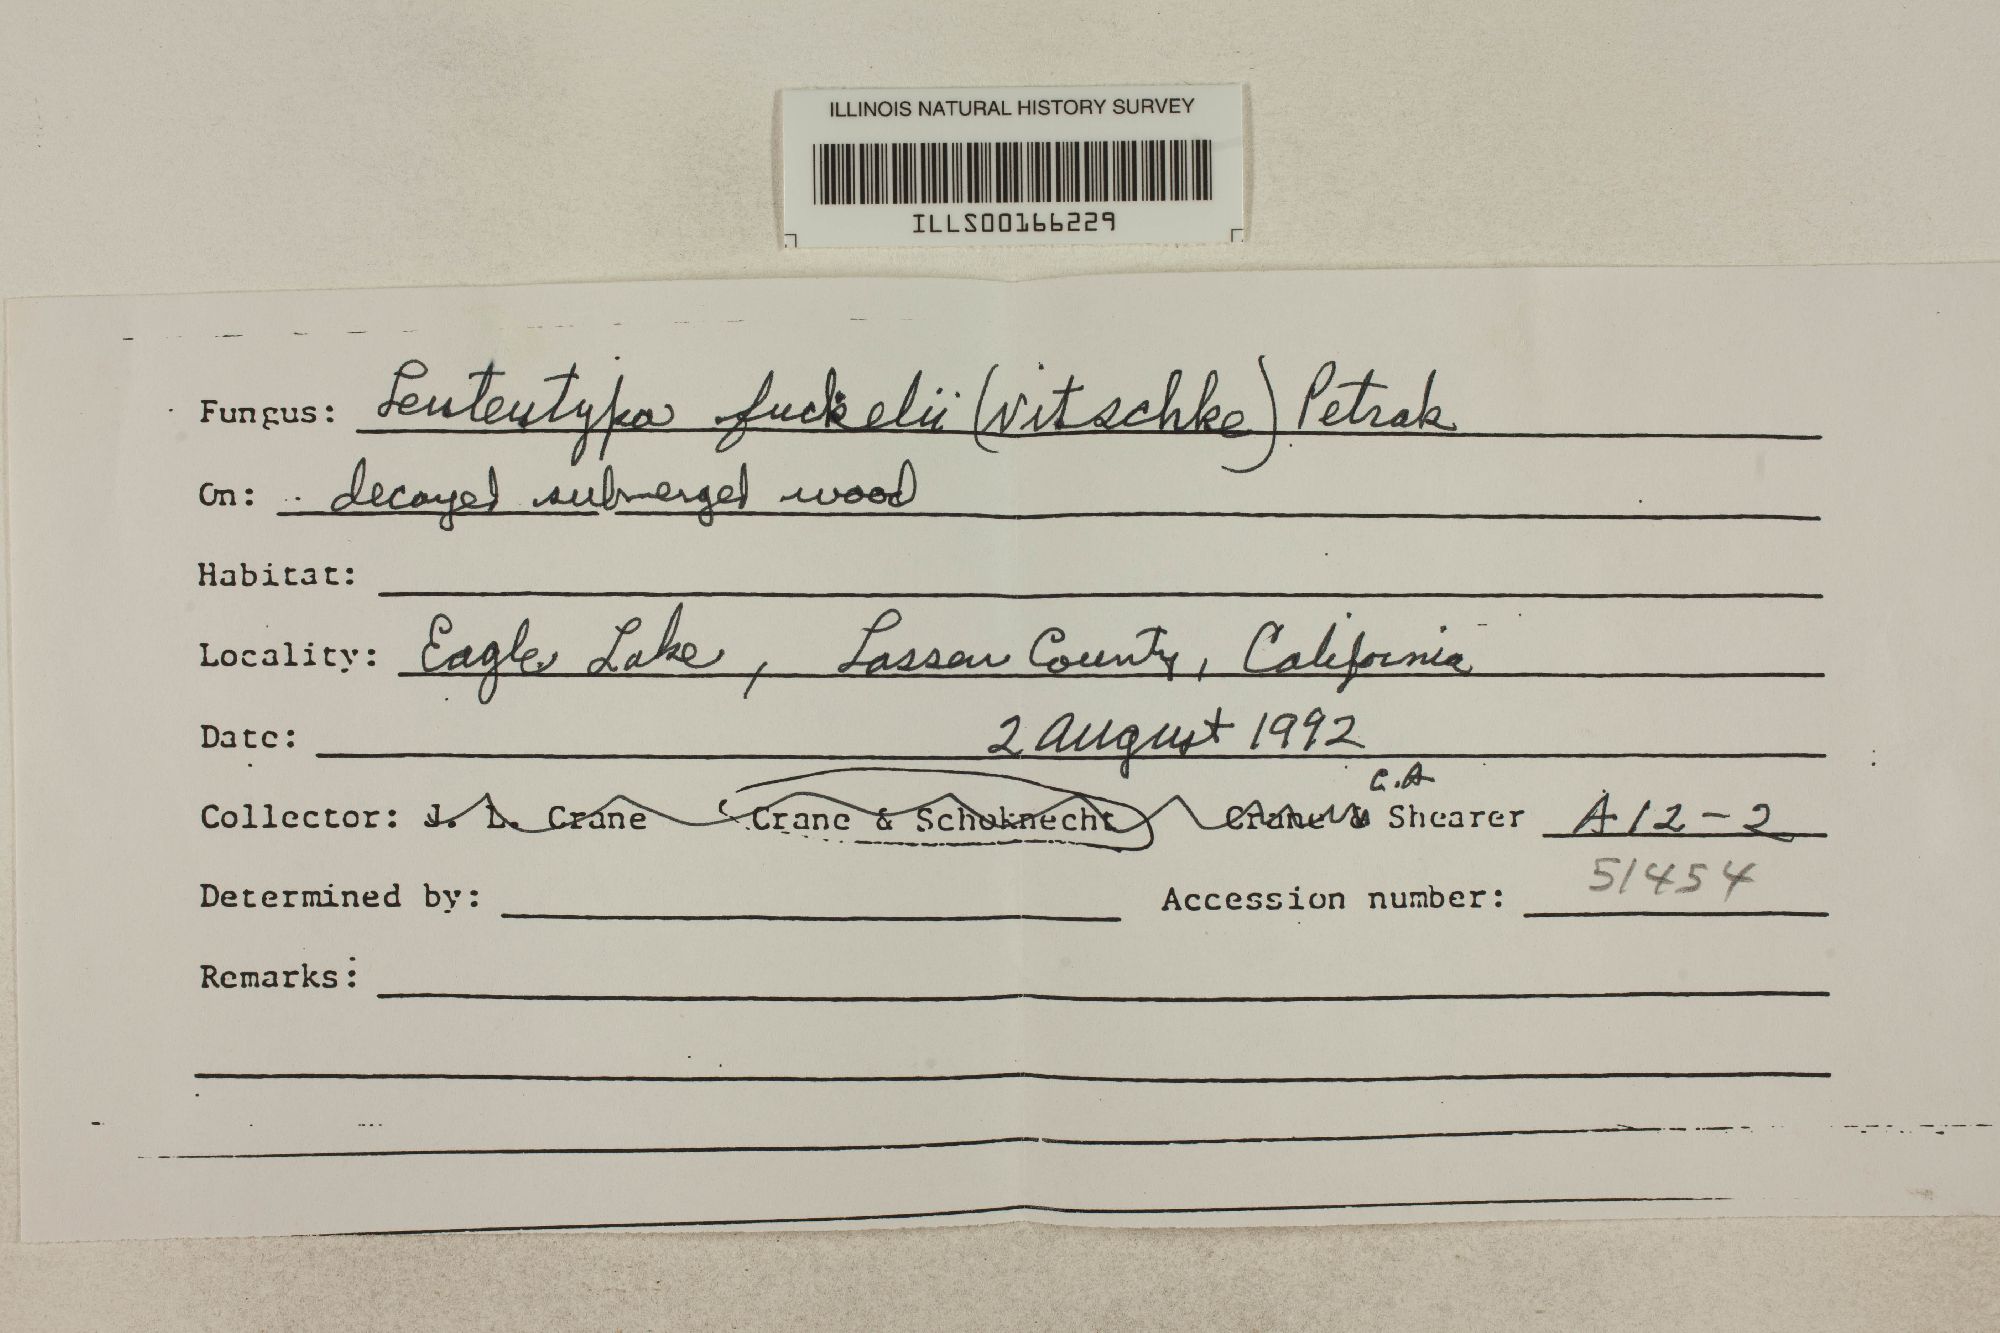 ILLINOIS NATURAL HISTORY SURVEY
ILLS00166229
Fungus: Leuteutypa fuckelii (Nitschke) Petrak
On: decayed submerged wood
Habitat:
Locality: Eagle Lake, Lassen County, California
Date: 2 August 1992
C.A
Collector: J. L. Crane Crane & Schoknecht Crane & Shearer A12-2
Determined by: Accession number: 51454
Remarks: